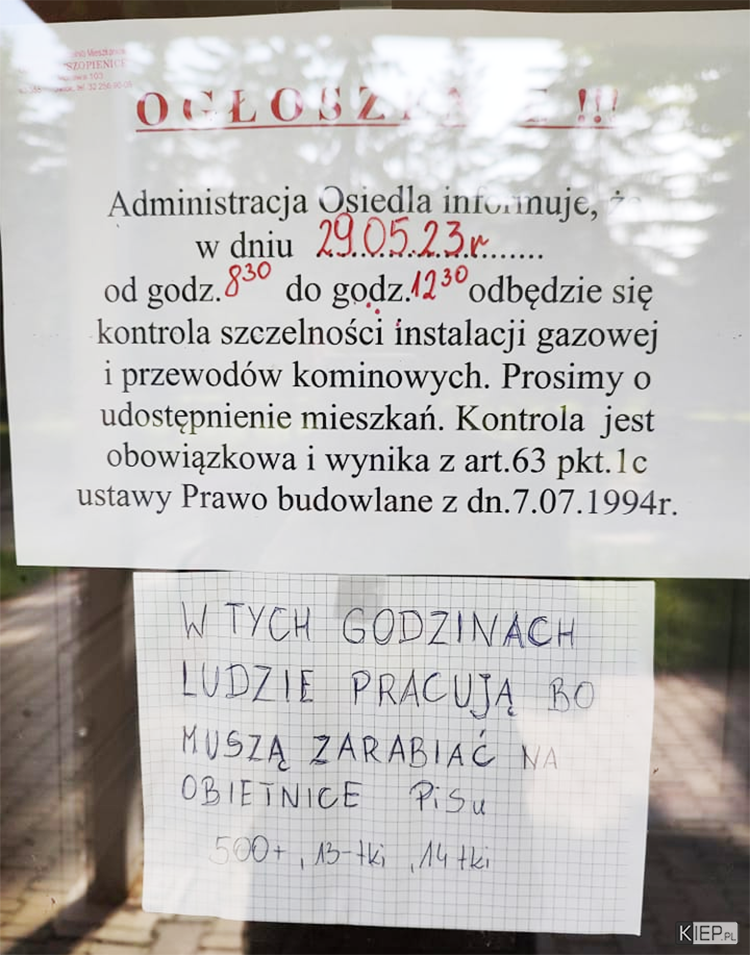 SZOPIENICE
OGŁOSZENIE !!!
Administracja Osiedla informuje, że
w dniu 29.05.23r.......
od godz.8³⁰ do godz.12³⁰ odbędzie się
kontrola szczelności instalacji gazowej
i przewodów kominowych. Prosimy o
udostępnienie mieszkań. Kontrola jest
obowiązkowa i wynika z art.63 pkt.1c
ustawy Prawo budowlane z dn.7.07.1994r.
W TYCH GODZINACH
LUDZIE PRACUJĄ BO
MUSZĄ ZARABIAĆ NA
OBIETNICE PiSu
500+, 13-tki, 14tki
KIEP.PL